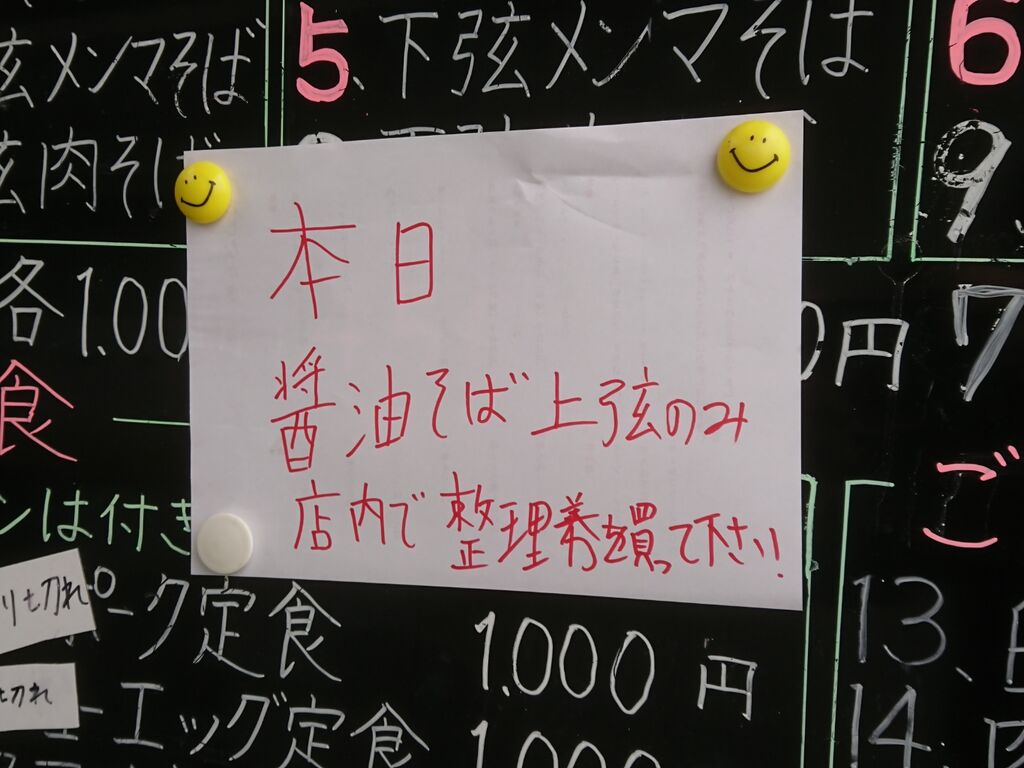 弦メンマそば
5、下弦メンマそば
6
弦肉そば
9.
本日
醤油そば上弦のみ
店内で整理券を買って下さい!
各1.00
0円
7
食
ンは付き
ご
り切れ
ポーク定食
1.000円
13、
切れ
ーエッグ定食
1.000
14、肉